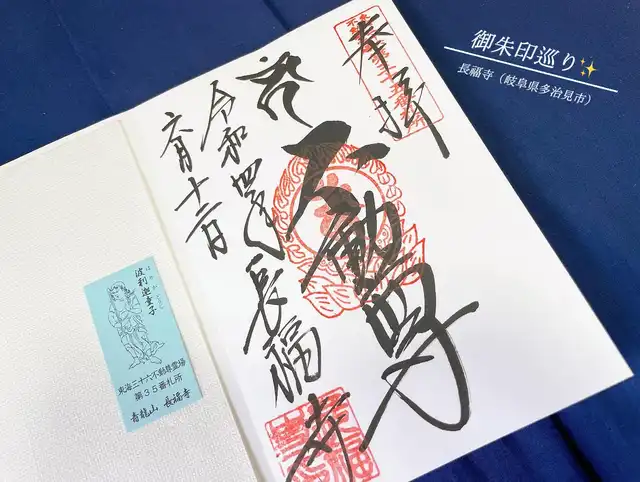 御朱印巡り✨
長福寺（岐阜県多治見市）
奉拝
不動尊
令和四年
六月十二日
長福寺
波利迦童子
はりかどうじ
東海三十六不動尊霊場
第３５番札所
青龍山 長福寺